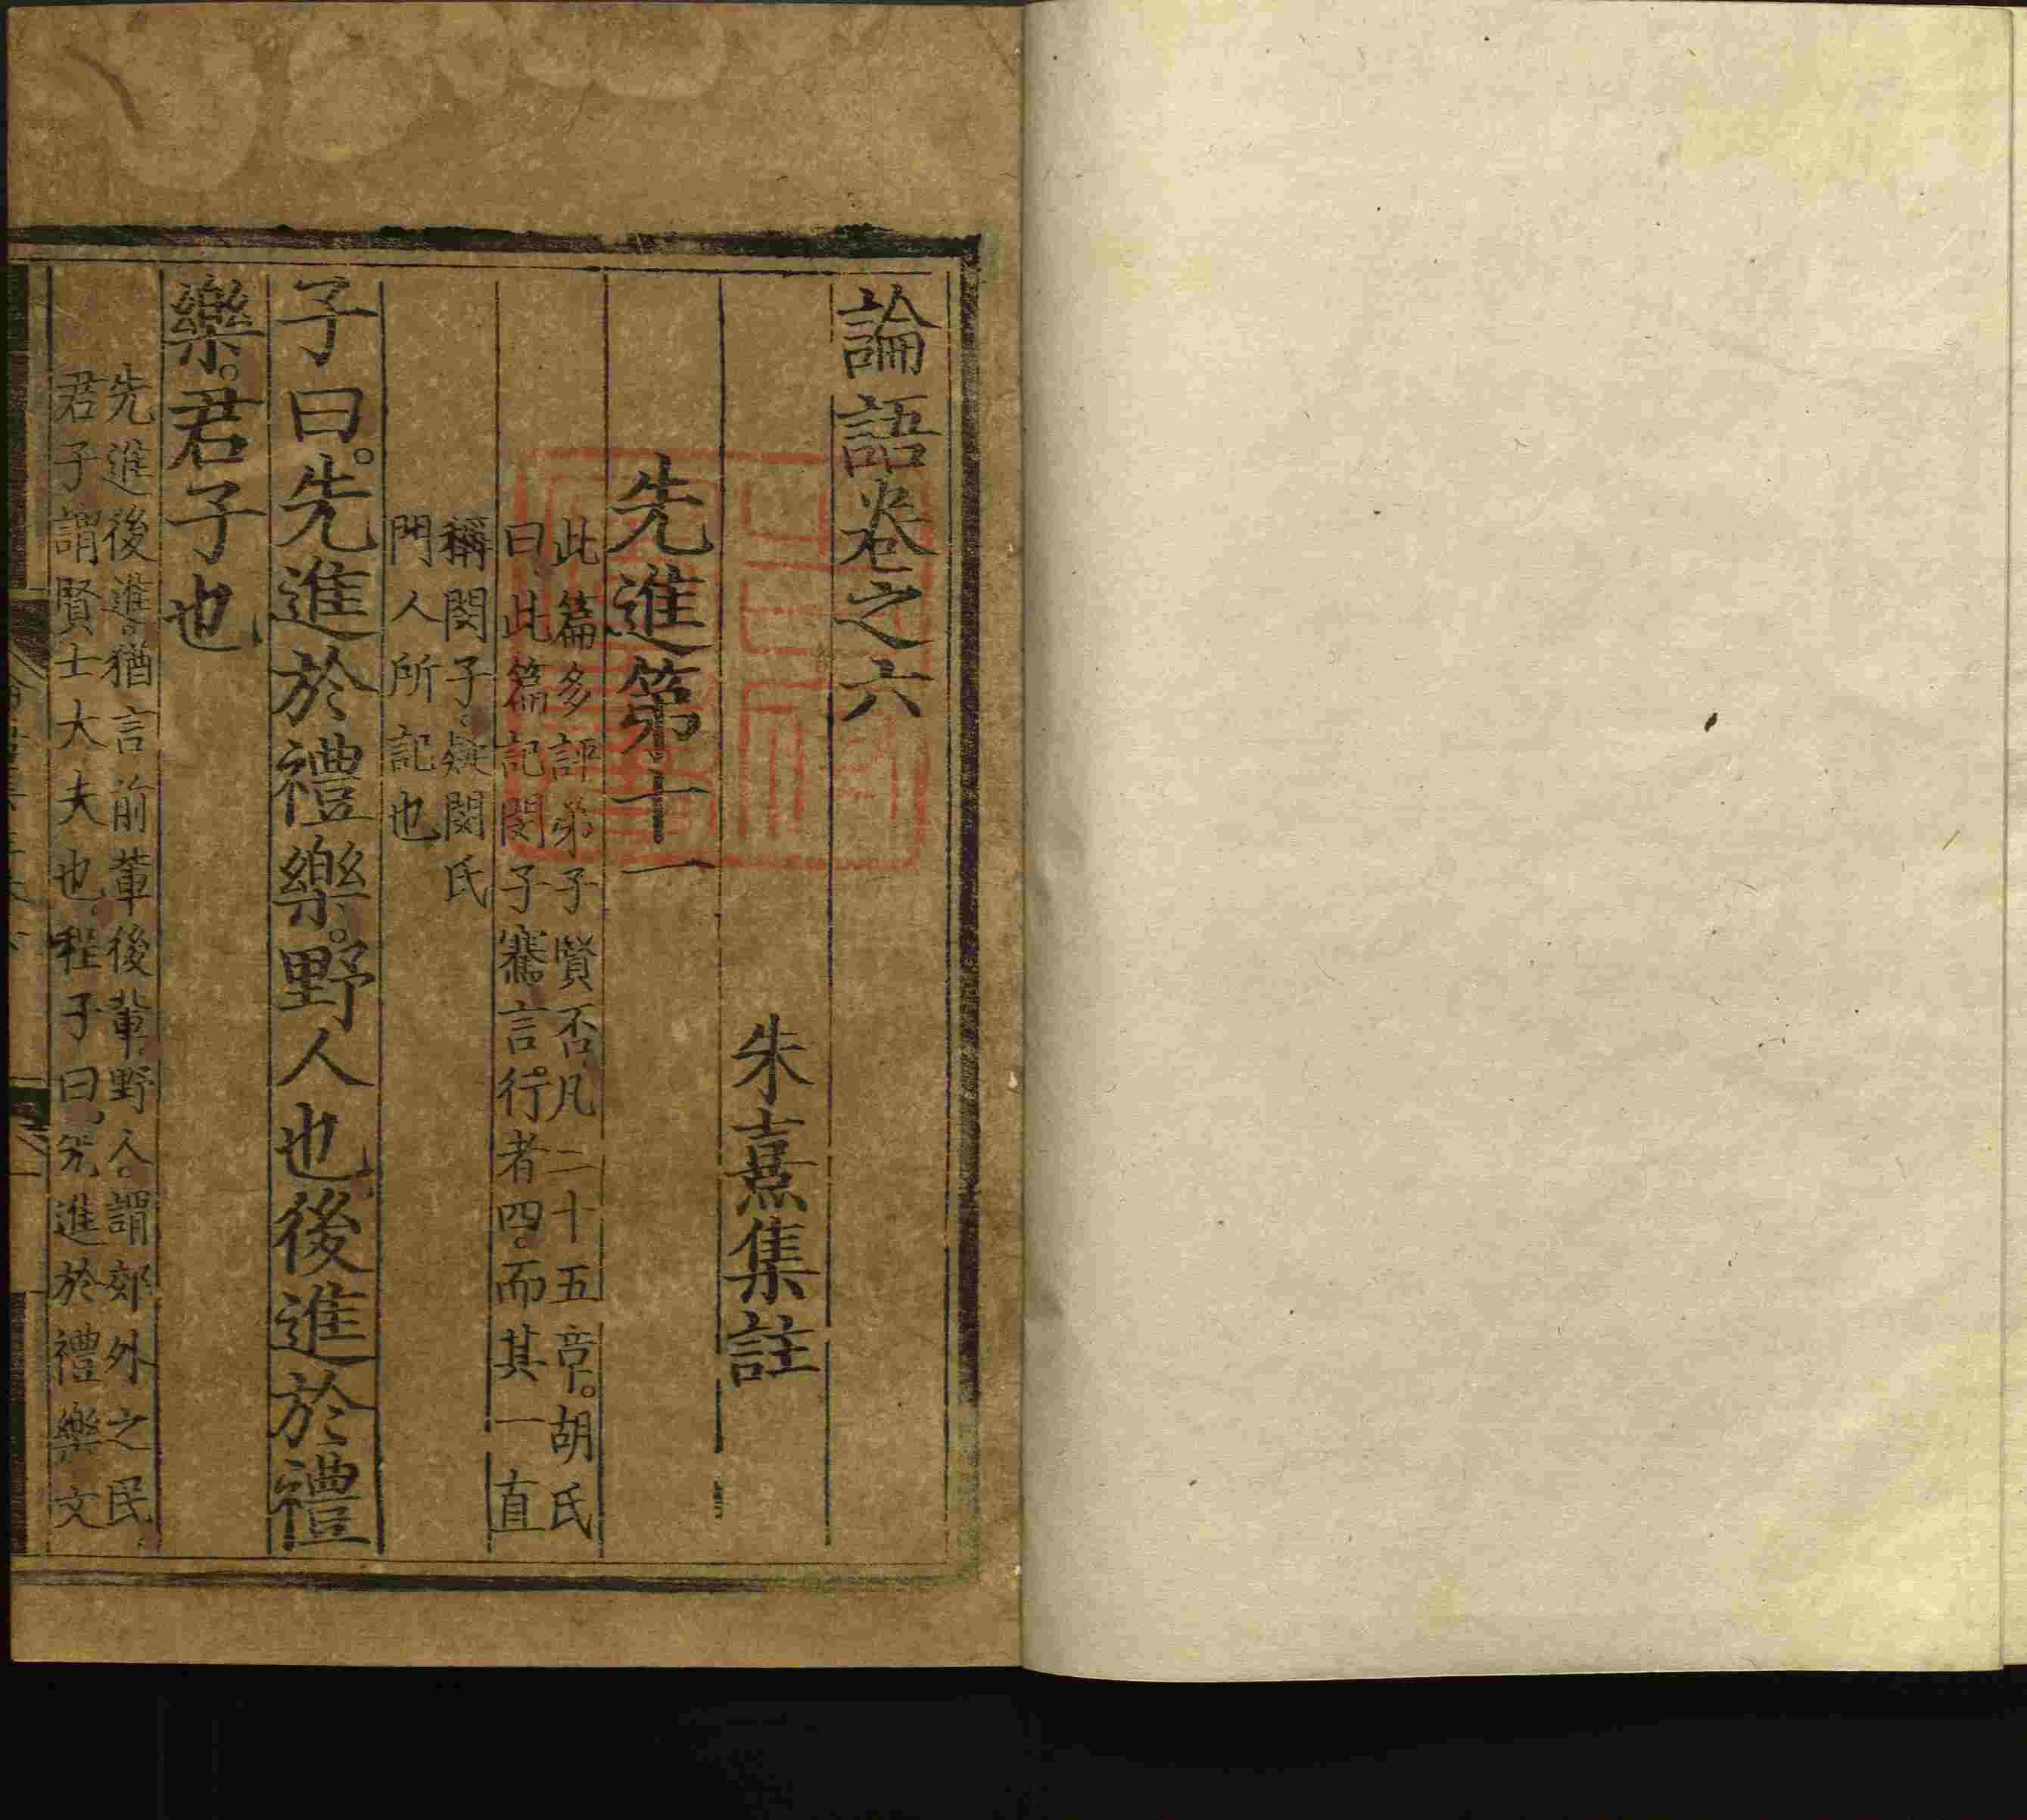 論語卷之六
朱熹集註
先進第十一
此篇多評弟子賢否凡二十五章。胡氏
曰此篇記閔子騫言行者四而其一直
稱閔子疑閔氏
門人所記也
子曰。先進於禮樂。野人也後進於禮
樂。君子也
先進後進猶言前輩後輩野人謂郊外之民
君子謂賢士大夫也程子曰先進於禮樂文